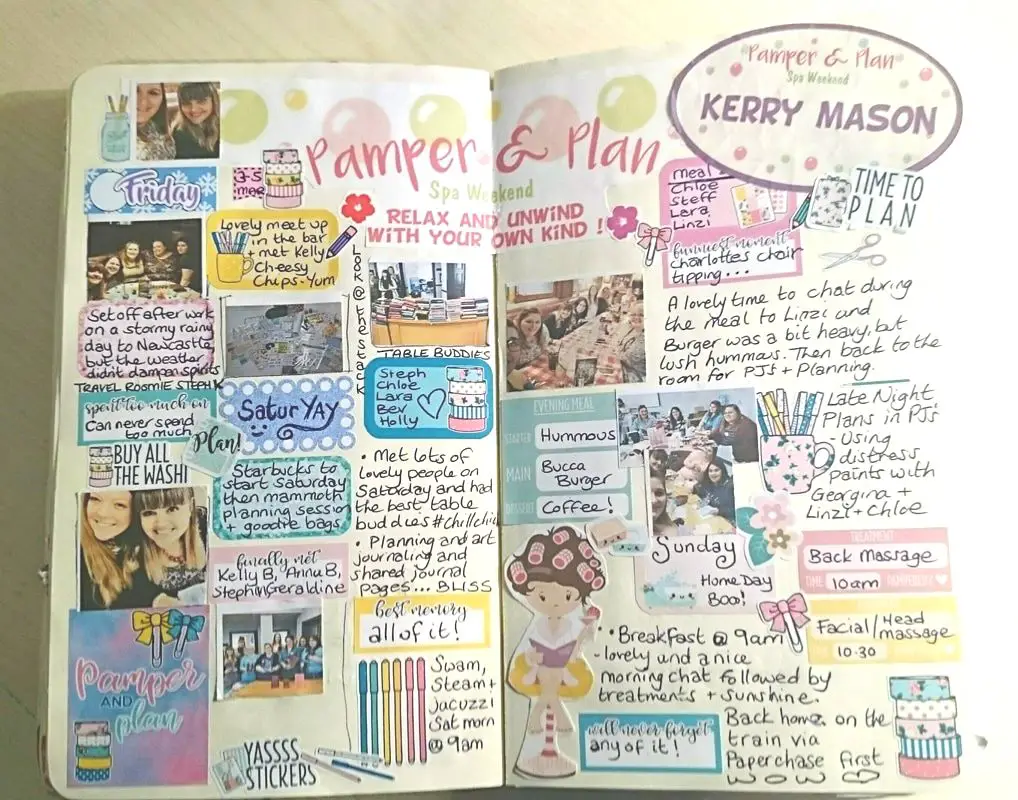 Pamper & Plan
Spa Weekend
KERRY MASON
Pamper & Plan
Spa Weekend
RELAX AND UNWIND
WITH YOUR OWN KIND!
Friday
3-5
mar
Lovely meet up
in the bar
+ met Kelly
Cheesy
Chips-Yum
Set off after work
on a stormy rainy
day to Newcastle
but the weather
didn't dampen spirits
TRAVEL ROSMIE STEPH K
Look @ the stack
spent too much on
Can never spend
too much
Plan!
BUY ALL
THE WASHI
SaturYAY
Starbucks to
start Saturday
then mammoth
planning session
+ goodie bags
finally met
Kelly B, Anna B,
Steph, Geraldine
Pamper
AND
plan
YASSSS
STICKERS
TABLE BUDDIES
Steph
Chloe
Lara
Bev
Holly
• Met lots of
lovely people on
Saturday and had
the best table
buddies #chillchi
• Planning and art
journaling and
shared journal
pages... BLISS
best memory
all of it!
Swam,
Steam +
jacuzzi
Sat morn
@ 9am
meal
Chloe
Steff
Lara
Linzi
TIME TO
PLAN
funniest moment
Charlottes chair
tipping...
A lovely time to chat during
the meal to Linzi and
Burger was a bit heavy, but
lush hummous. Then back to the
room for PJS + Planning.
EVENING MEAL
STARTER
Hummous
MAIN
Bucca
Burger
DESSERT
Coffee!
Late Night
Plans in PJs
- Using
distress
paints with
Georgina +
Linzi + Chloe
Sunday
Home Day
Booo!
TREATMENT
Back Massage
TIME
10am
Facial/Head
massage
10.30
• Breakfast @ 9am
- lovely und a nice
morning chat followed by
treatments + sunshine.
will never forget
any of it!
Back home on the
train via
Paperchase first
WOW